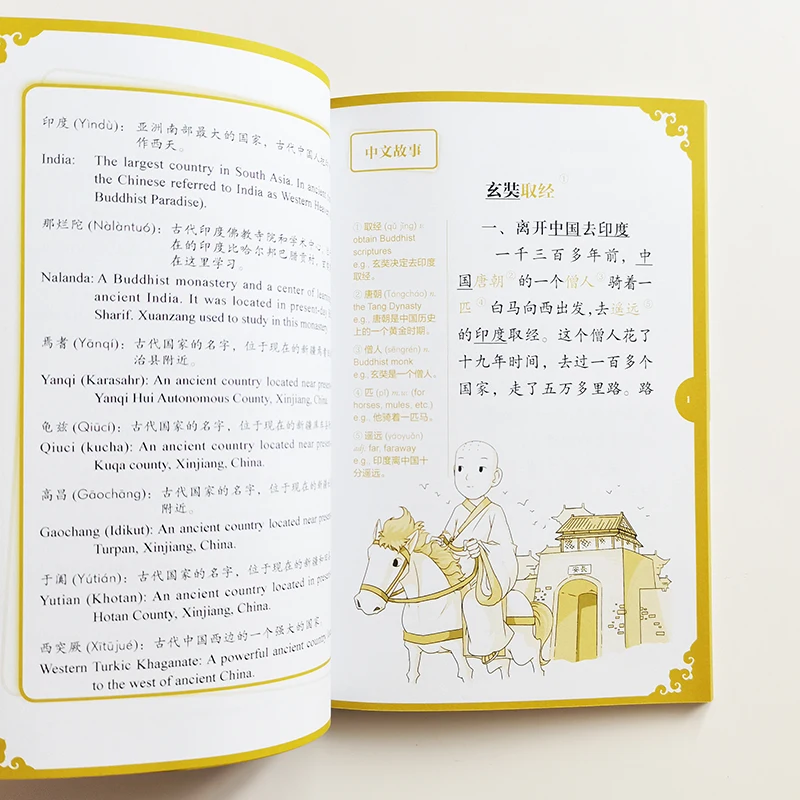 印度 (Yìndù)： 亚洲南部最大的国家，古代中国人
作西天。
India: The largest country in South Asia. In ancient
the Chinese referred to India as Western Heaven
Buddhist Paradise).
那烂陀 (Nàlàntuó)： 古代印度佛教寺院和学术中心
在的印度比哈尔邦巴腊贡村
在这里学习。
Nalanda: A Buddhist monastery and a center of learning
ancient India. It was located in present-day
Sharif. Xuanzang used to study in this monastery.
焉耆 (Yānqí)： 古代国家的名字，位于现在的新疆焉耆
治县附近。
Yanqi (Karasahr): An ancient country located near present
Yanqi Hui Autonomous County, Xinjiang, China.
龟兹 (Qiūcí)： 古代国家的名字，位于现在的新疆库车
Qiuci (kucha): An ancient country located near present
Kuqa county, Xinjiang, China.
高昌 (Gāochāng)： 古代国家的名字，位于现在的新疆
附近。
Gaochang (Idikut): An ancient country located near present
Turpan, Xinjiang, China.
于阗 (Yútián)： 古代国家的名字，位于现在的新疆和田
Yutian (Khotan): An ancient country located in present
Hotan County, Xinjiang, China.
西突厥 (Xītūjué)： 古代中国西边的一个强大的国家。
Western Turkic Khaganate: A powerful ancient country
to the west of ancient China.
中文故事
玄奘取经①
① 取经 (qǔ jīng) v.
obtain Buddhist
scriptures
e.g., 玄奘决定去印度
取经。
② 唐朝 (Tángcháo) n.
the Tang Dynasty
e.g., 唐朝是中国历史
上的一个黄金时期。
③ 僧人 (sēngrén) n.
Buddhist monk
e.g., 玄奘是一个僧人。
④ 匹 (pǐ) m.w. (for
horses, mules, etc.)
e.g., 他骑着一匹马。
⑤ 遥远 (yáoyuǎn)
adj. far, faraway
e.g., 印度离中国十
分遥远。
一、离开中国去印度
一千三百多年前，中
国唐朝②的一个僧人③骑着一
匹④白马向西出发，去遥远⑤
的印度取经。这个僧人花了
十九年时间，去过一百多个
国家，走了五万多里路。路
1
安長